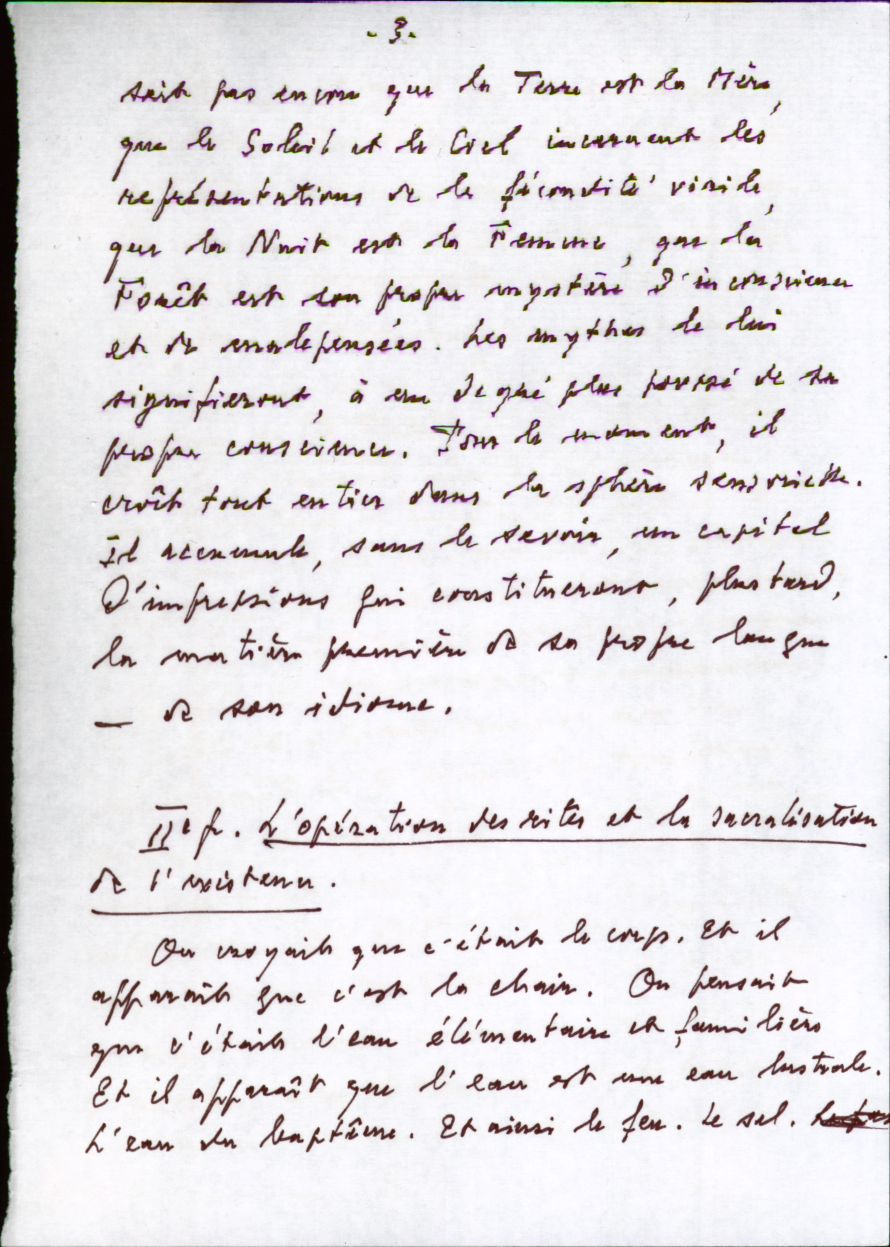 - 3 -
sait pas encore que la Terre est la Mère,
que le Soleil et le Ciel incarnent les
représentations de la fécondité virile,
que la Nuit est la Femme, que la
Forêt est son propre mystère d'inconscience
et de . Les mythes le lui
signifieront, à un degré plus poussé de sa
propre conscience. Pour le moment, il
croît tout entier dans la sphère sensorielle.
Il accumule, sans le savoir, un capital
d'impressions qui constitueront, plus tard,
la matière première de sa propre langue
— de son idiome.
IIe p. L'opération des rites et la sacralisation
de l'existence.
On croyait que c'était le corps. Et il
apparaît que c'est la chair. On pensait
que c'était l'eau élémentaire et familière
Et il apparaît que l'eau est une eau lustrale.
L'eau du baptême. Et ainsi le feu. Le sel.